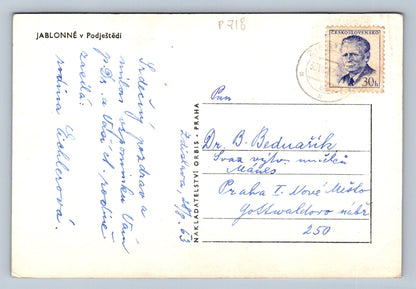 P 718
JABLONNÉ v Podještědí
ČESKOSLOVENSKO
30 h
Srdečný pozdrav a
milou vzpomínku Vám
p. Dr. a Vaší ct. rodině
zasílá
rodina Eichlerová.
Zdislava, 28/8. 63
NAKLADATELSTVÍ ORBIS - PRAHA
Pan
Dr. B. Bednařík
Svaz výtv. umělců
Mánes
Praha I. Nové Město
Gottwaldovo nábř
250